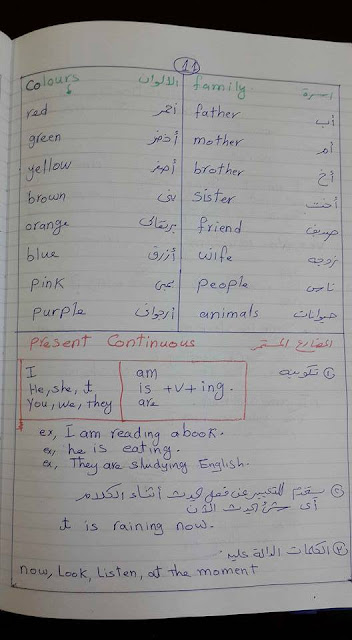 11
Colours الالوان family اسرة
red أحمر father أب
green أخضر mother أم
yellow أصفر brother أخ
brown بنى sister أخت
orange برتقالى friend صديق
blue أزرق wife زوجه
pink people ناس
purple أرجوانى animals حيوانات
Present Continuous المضارع المستمر
① تكوينه
I am
He, she, it is +v+ ing.
You, we, they are
ex, I am reading a book.
ex, he is eating.
ex, They are studying English.
② يستخدم للتعبير عن فعل يحدث أثناء الكلام
أى يحدث الآن
It is raining now.
③ الكلمات الدالة عليه
now, Look, Listen, at the moment